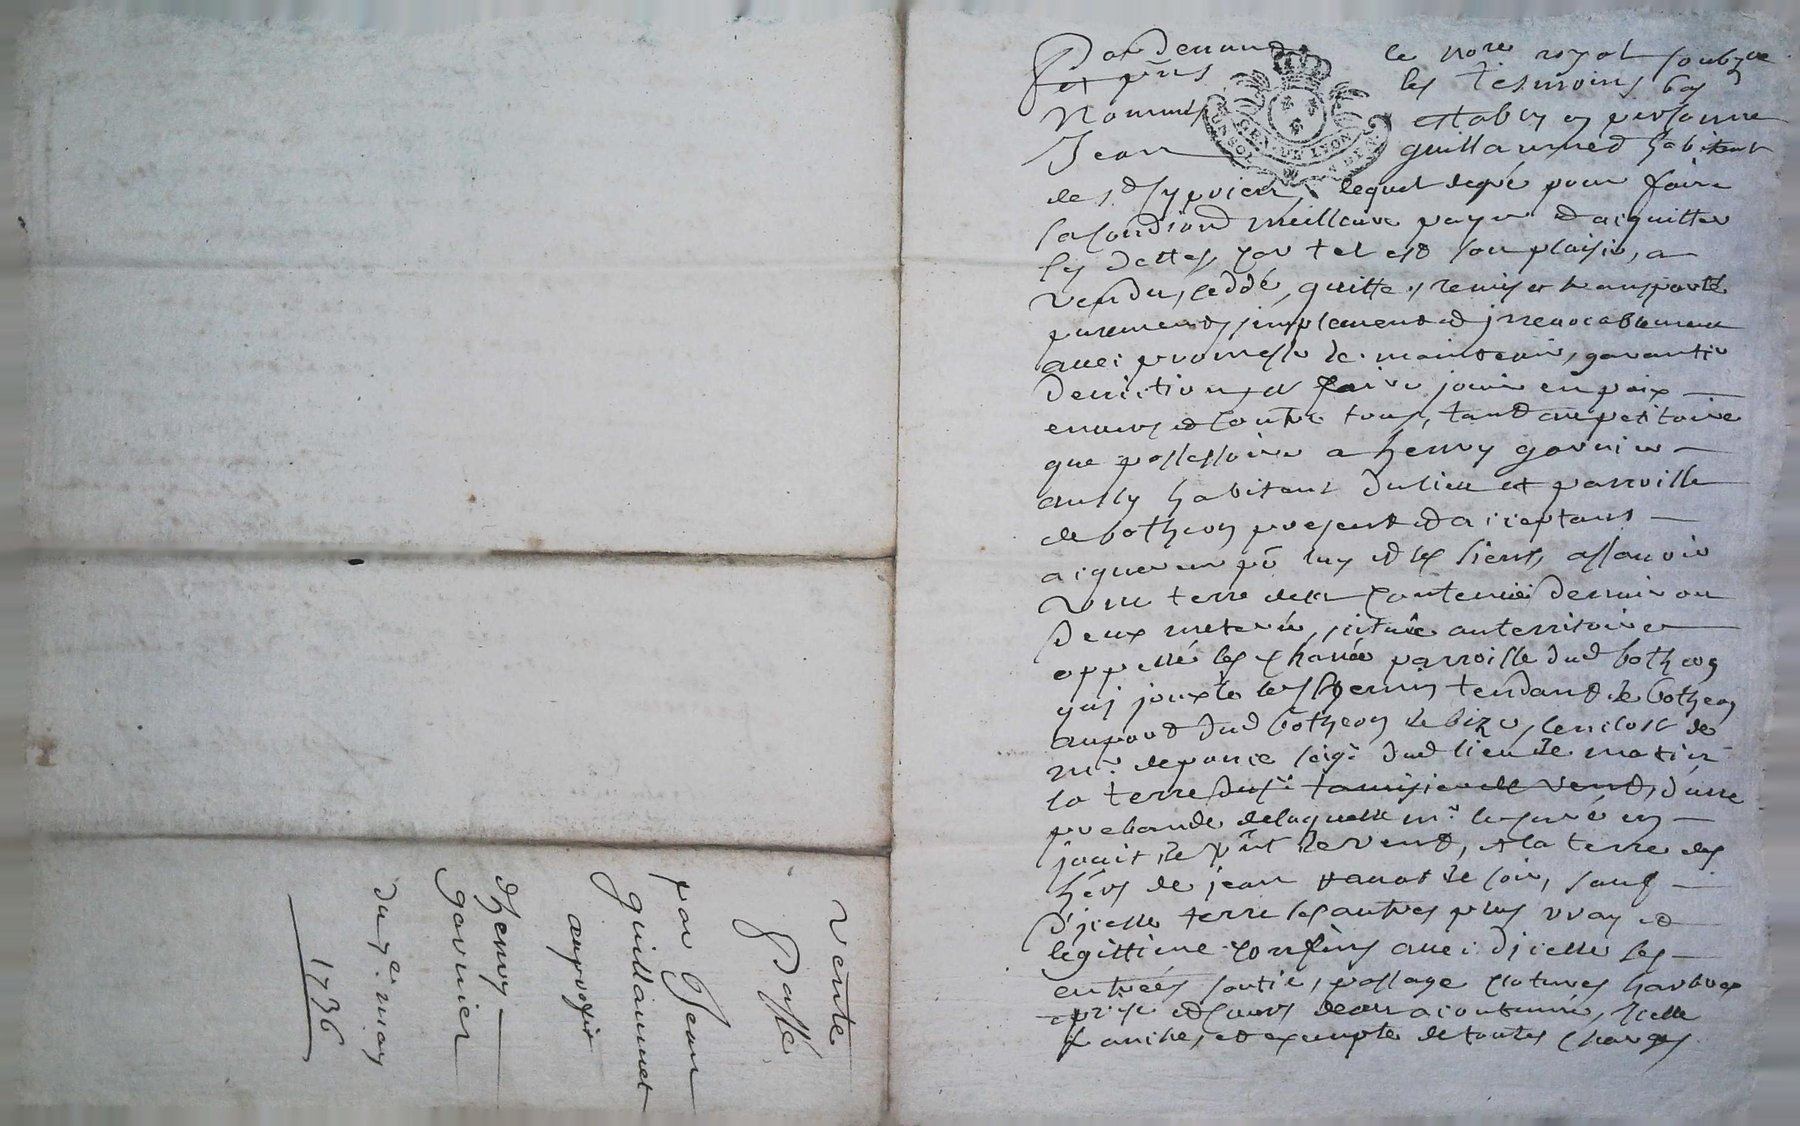 Par devant le no.re royal soubz.ne
et p.ns les tesmoins bas
Nommés estably en personne
Jean guillaumet habitant
de s.t Cyprien, lequel de gré pour faire
sa condition meilleure payer et acquitter
ses dettes, car tel est son plaisir, a
vendu, ceddé, quitté, remis et transporté
purement, simplement et irrevocablement
avec promesse de maintenir, garantir
d'eviction et faire jouir en paix
envers et contre tous, tant au petitoire
que possessoire a henry garnier
aussy habitant du lieu et parroisse
de botheon present et acceptant
acquereur po.r luy et les siens, assavoir
une terre de la contenüe d'environ
deux meterée, scituée au territoire
appellé les parroisse dud botheon
qui jouxte le chemin tendant de botheon
au port dud botheon de bize, l'enclos de
m.r de ponce seig.r dud lieu de matin
la terre du s.r d'une
prebande de laquelle m.r le curé en
jouit de p.nt de vent, et la terre des
hers de jean de soir, sauf
d'icelle terre ses autres plus vray et
legittime confins avec d'icelle ses
entrées, sortie, passage clotures harbres
prise et cours d'eau accoutumé, icelle
franche, et exempte de toutes charges
Vente
Passé
par Jean
guillaumet
au profit
d'henry
garnier
du 7.e may
1736
GEN. DE LYON